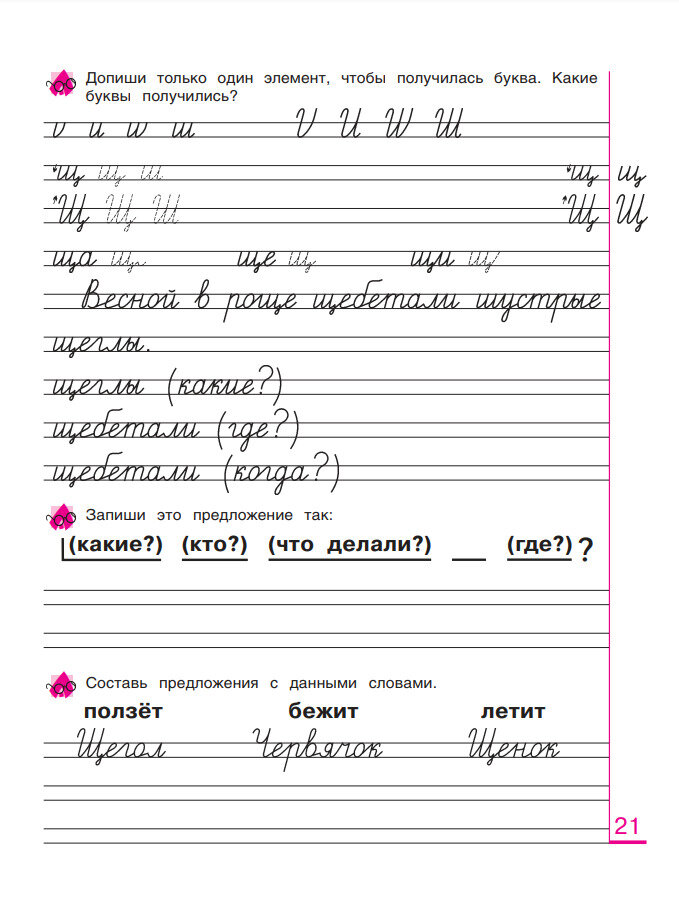 Допиши только один элемент, чтобы получилась буква. Какие
буквы получились?
и и ш ш И И Ш Ш
щ щ ш щ щ
Щ Щ Ш Щ Щ
ща щ ще щ щи щ
Весной в роще щебетали шустрые
щеглы.
щеглы (какие?)
щебетали (где?)
щебетали (когда?)
Запиши это предложение так:
(какие?) (кто?) (что делали?) __ (где?) ?
Составь предложения с данными словами.
ползёт бежит летит
Щегол Червячок Щенок
21